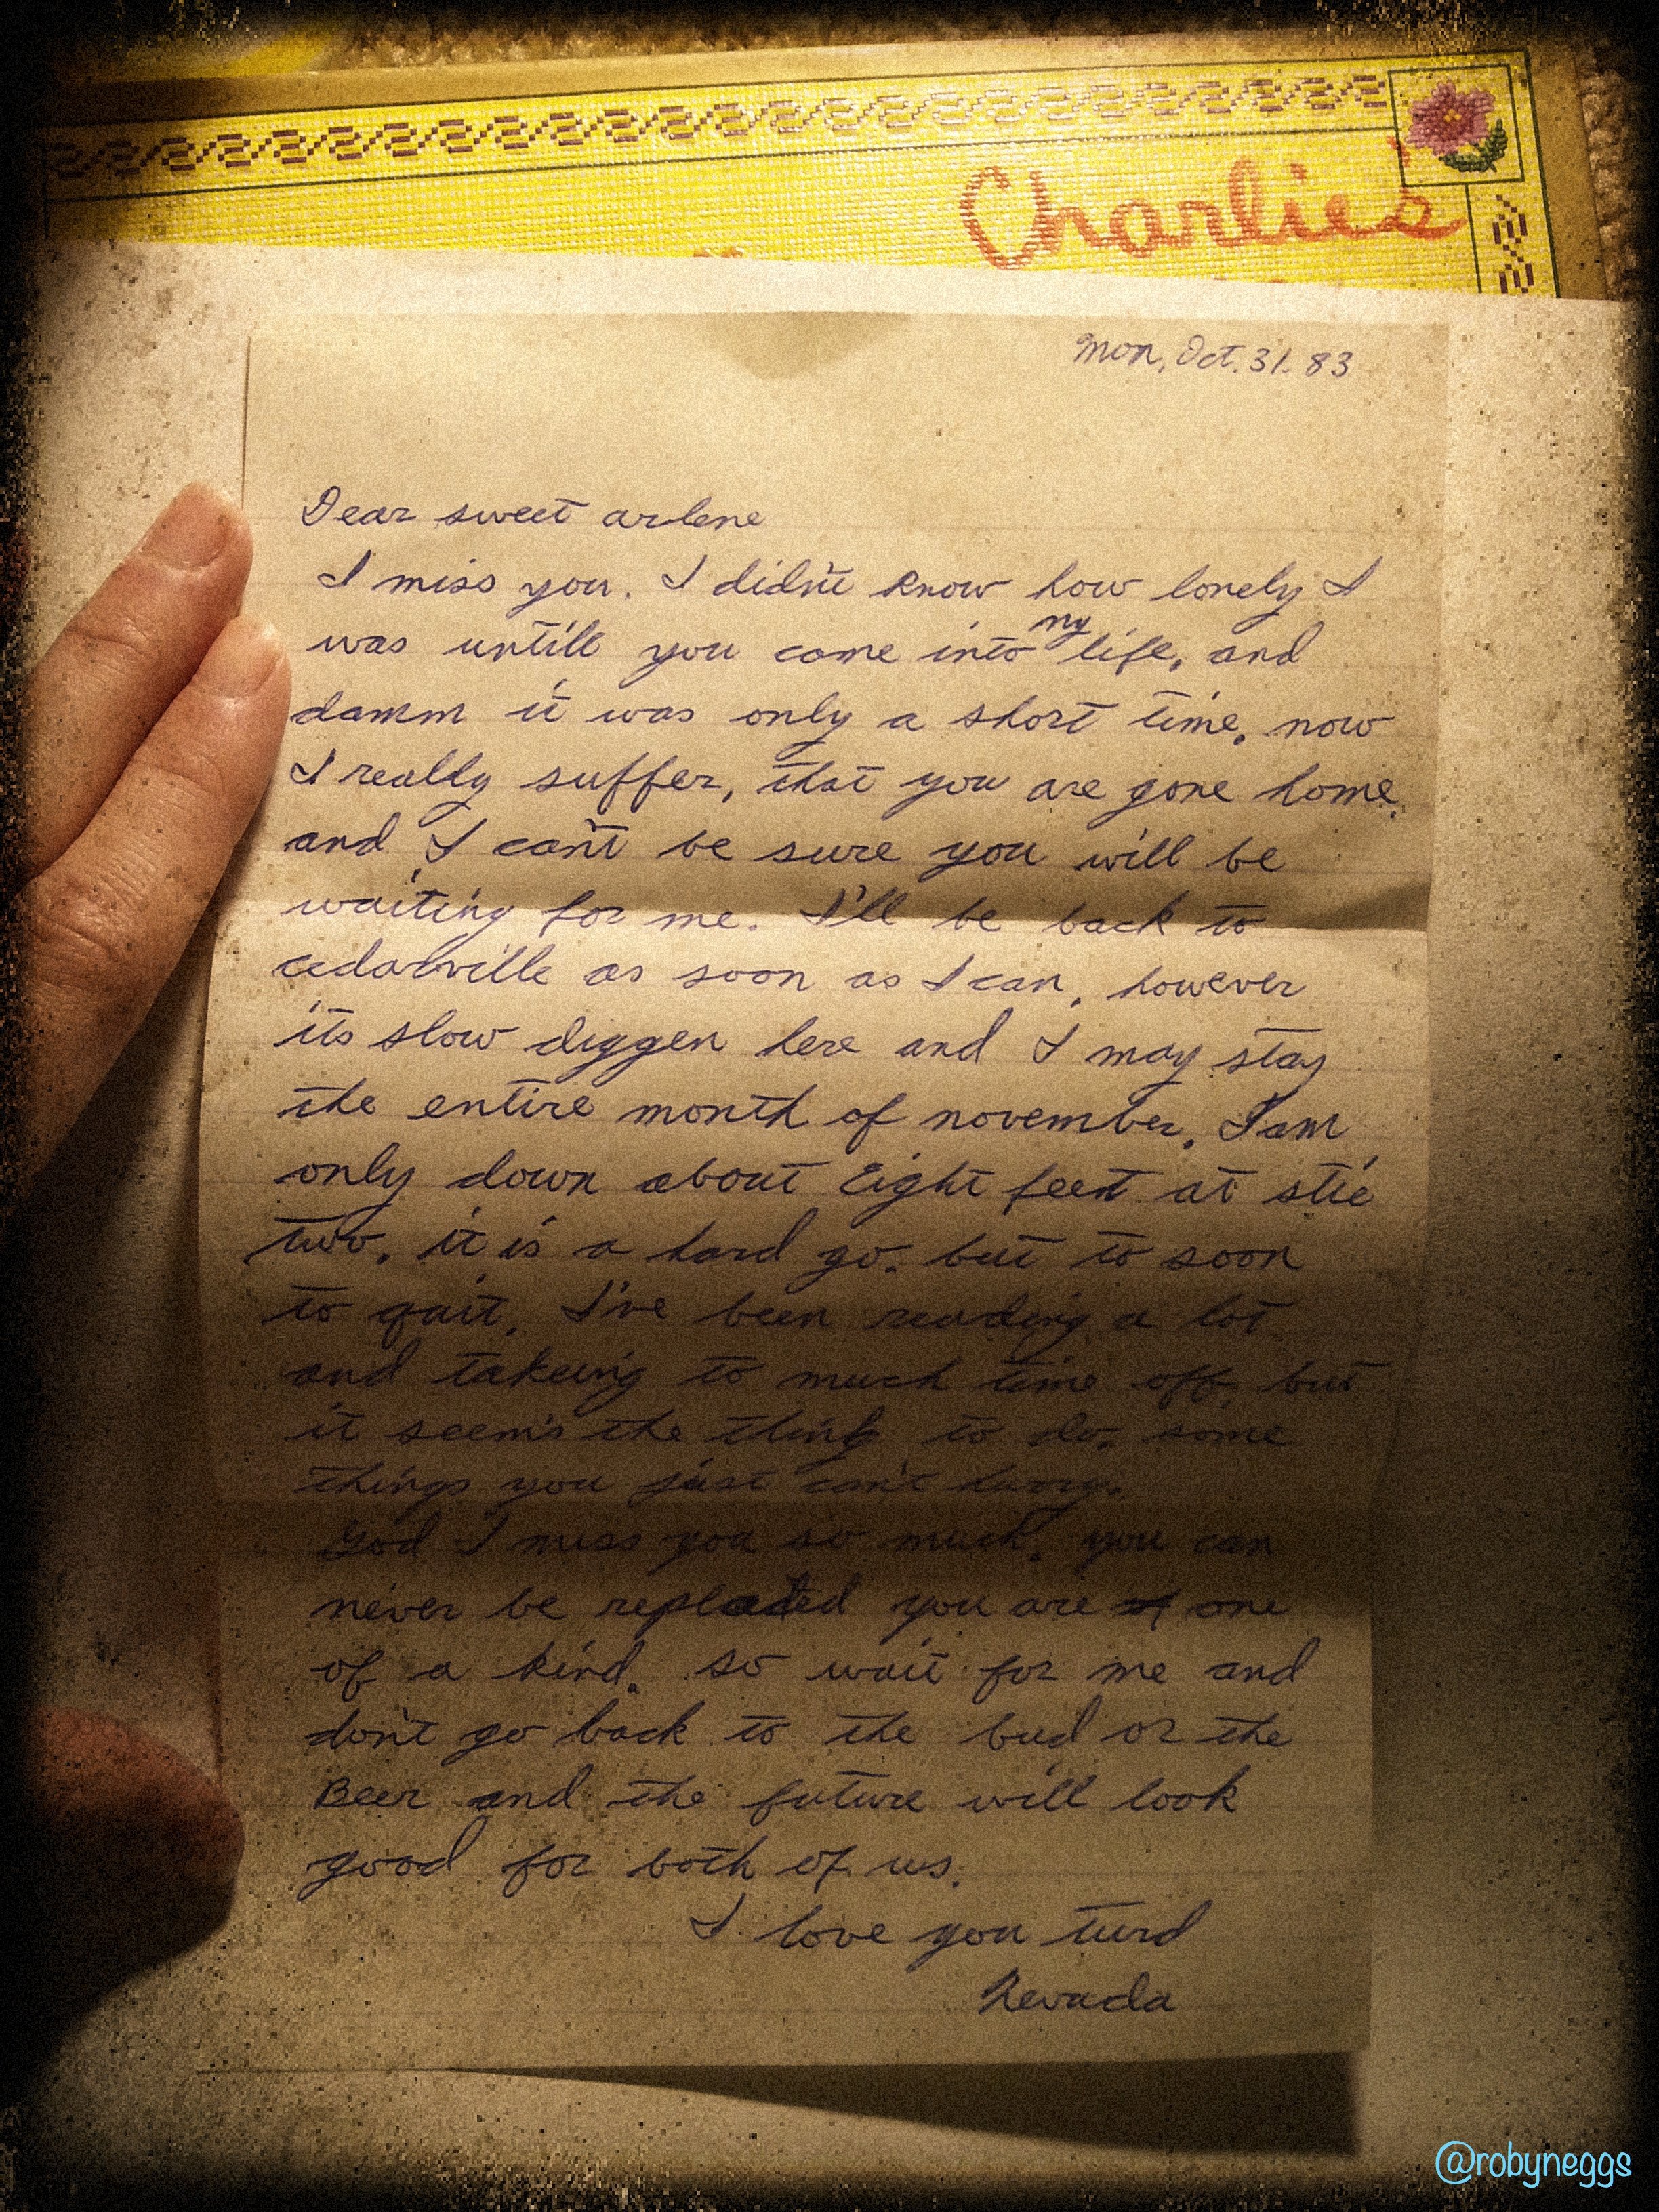 Charlie's
Mon, Oct. 31. 83
Dear sweet arlene
I miss you. I didn't know how lonely I
was untill you come into my life, and
damm it was only a short time. now
I really suffer, that you are gone home.
and I can't be sure you will be
waiting for me. I'll be back to
cedarville as soon as I can, however
its slow diggen here and I may stay
the entire month of november. I am
only down about Eight feet at
two. it is a hard go. but to soon
to quit. I've been reading a lot
and takeing to much time off, but
it seem's the thing to do. some
things you just can't hurry.
God I miss you so much. you can
never be replaced you are one
of a kind. so wait for me and
don't go back to the bud or the
Beer and the future will look
good for both of us.
I love you turd
Nevada
@robyneggs